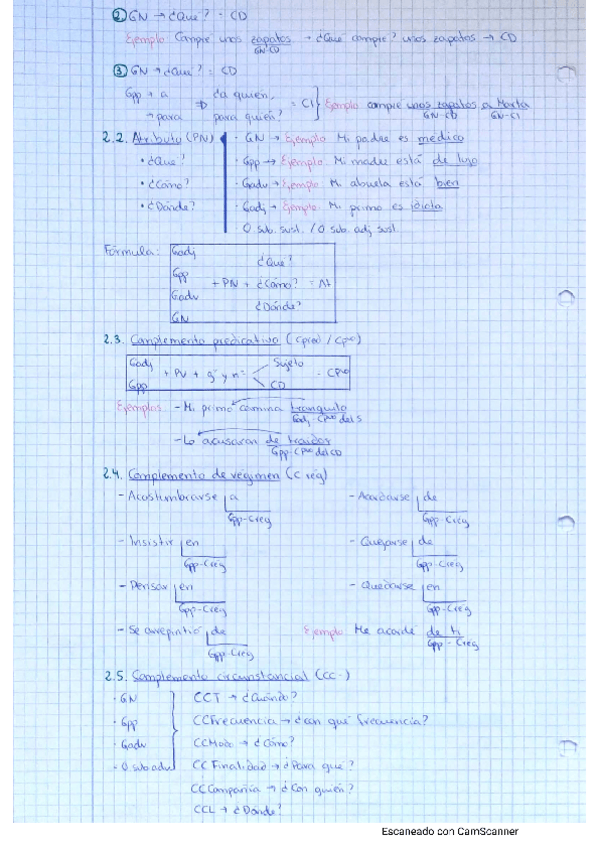 ② GN → ¿Qué? = CD
Ejemplo: Compré unos zapatos → ¿Qué compré? unos zapatos → CD
GN-CD
③ GN → ¿Qué? = CD
Gpp + a ⇒ ¿a quién, = CI } Ejemplo: compré unos zapatos a Marta
→ para para quién? GN-CD GN-CI
2.2. Atributo (PN)
• ¿Qué?
• ¿Cómo?
• ¿Dónde?
· GN → Ejemplo: Mi padre es médico
· Gpp → Ejemplo: Mi madre está de lujo
· Gadv → Ejemplo: Mi abuela está bien
· Gadj → Ejemplo: Mi primo es idiota
O sub. sust. / O sub. adj sust
Fórmula:
Gadj ¿Qué?
Gpp + PN + ¿Cómo? = At
Gadv ¿Dónde?
GN
2.3. Complemento predicativo (Cpred / Cpvo)
Gadj + PV + g y nº Sujeto = CPvo
Gpp CD
Ejemplos: - Mi primo camina tranquilo
Gadj CPvo del S
- Lo acusaron de traidor
Gpp-CPvo del CD
2.4. Complemento de régimen (C rég)
- Acostumbrarse a
Gpp-Creg
- Acordarse de
Gpp-Creg
- Insistir en
Gpp-Creg
- Quejarse de
Gpp-Creg
- Pensar en
Gpp-Creg
- Quedarse en
Gpp-Creg
- Se arrepintió de
Gpp-Creg
Ejemplo: Me acordé de ti
Gpp-Creg
2.5. Complemento circunstancial (CC-)
· GN
· Gpp
· Gadv
· O sub adv
CCT → ¿Cuándo?
CCFrecuencia → ¿con qué frecuencia?
CCModo → ¿Cómo?
CC Finalidad → ¿Para qué?
CCCompañía → ¿Con quién?
CCL → ¿Dónde?
Escaneado con CamScanner